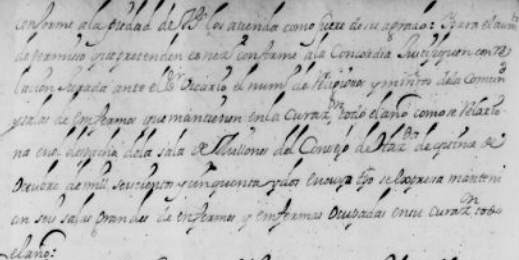 conforme ala piedad de VS. los atienda como fuere de su agrado: Para el aumto
de termino que pretenden es nezº conforme ala Concordia Justifiquen con Re
lacion Jurada ante el Sr Vicario el numº de Religiosos y ministros dela Comund
y salas de enfermos que mantienen en la Curazon todo el año como se Relaxio
na en el despacho dela sala de Millones del Consejo de Hazda de quinze de
Octubre de mill seiscientos y cinquenta y dos en cuyo tpo se Expresa manteni
an seis salas grandes de enfermos y enfermas Ocupadas en su Curazon todo
el año: